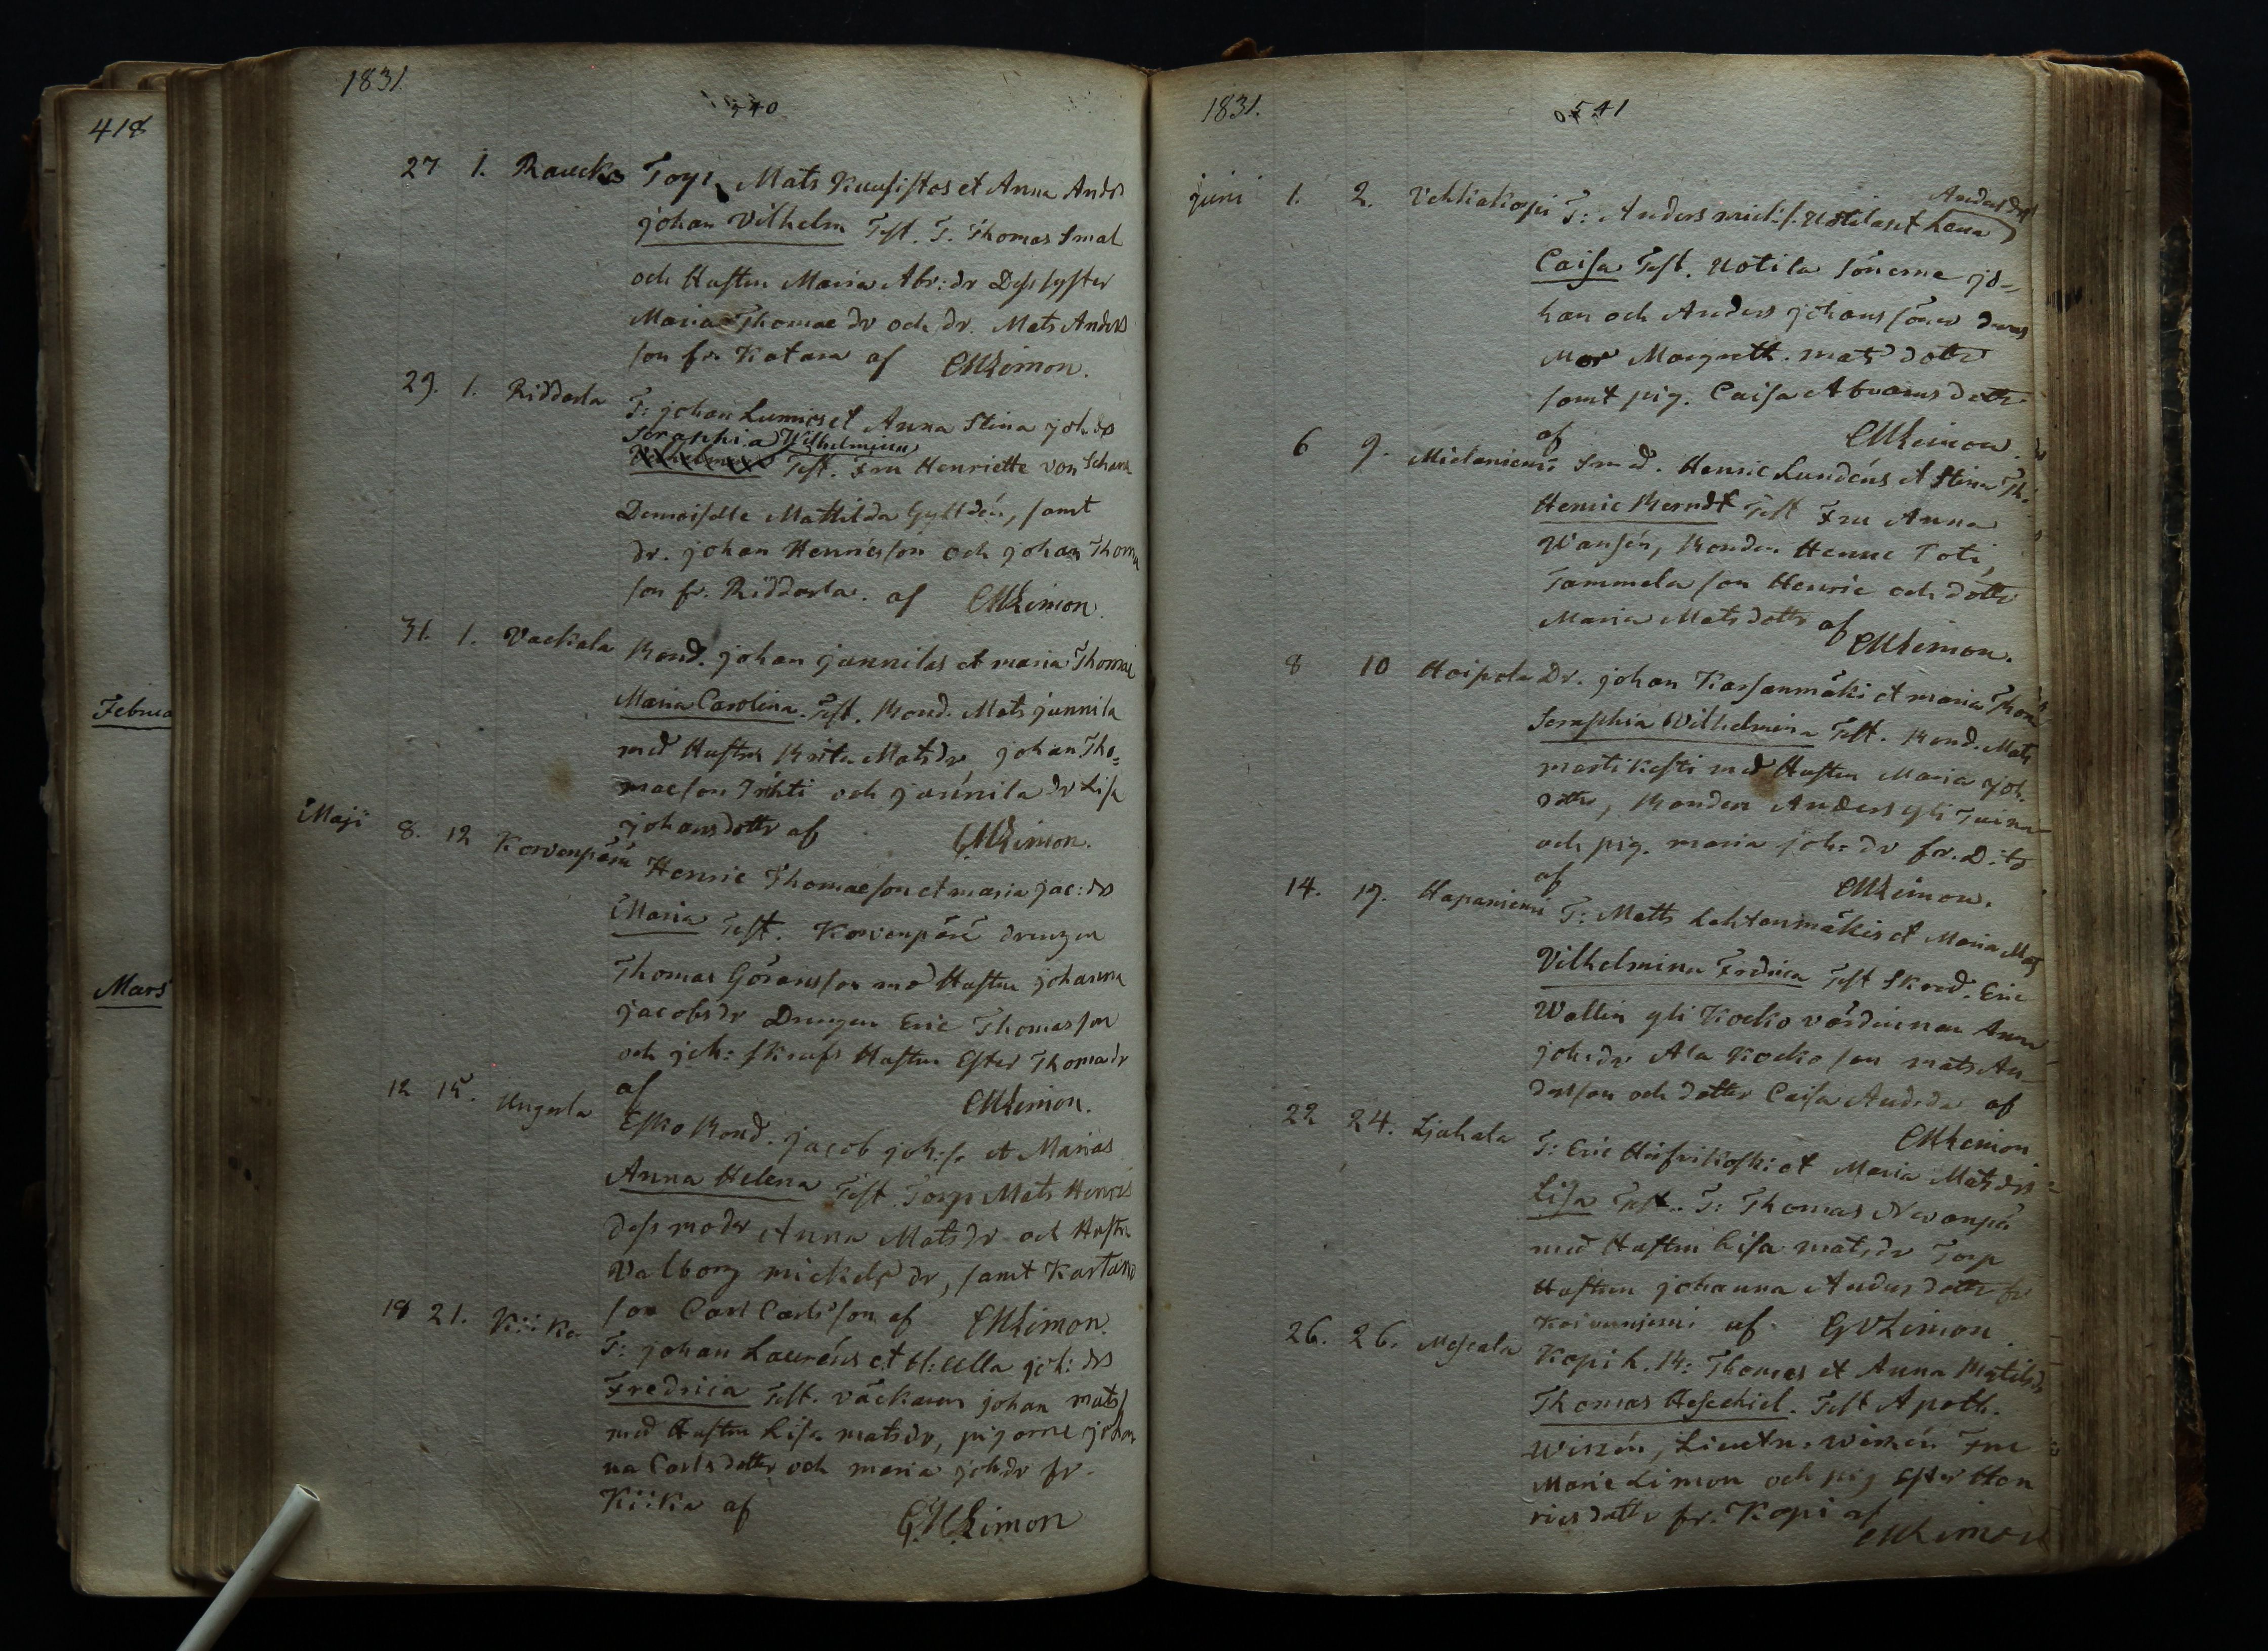 418
Februa
Mars
1831.
540
27 1. Raucko Torp. Mats Kuusistos et Anna Andrs
johan Vilhelm Test. T. Thomas Smal
och Hustru Maria Abr: dr Dess syster
Maria Thomae dr och dr. Mats Anders
son fr. Katara af GVLimon.
29. 1. Riddarla T: johan Lumies et Anna Stina joh. drs
Seraphia Wilhelmina
Test. Fru Henriette von Schan
Demoiselle Mathilda Gylldén, samt
dr. johan Henricsson och johan Thom
son fr. Riddarla. af GVLimon.
31. 1. Vackala Bond. johan junnilas et maria Thomae
Maria Carolina. Test. Bond. Mats junnila
med Hustru Brita Mats dr johan Tho=
maeson och junnila dr Lisa
johansdottr af GVLimon.
Maji 8. 12 Korvenpää Henric Thomaeson et maria jac: drs
Maria Test. Korvenpää drengen
Thomas Göransson med Hustru johanna
jacobs dr Drengen Eric Thomasson
och joh: Hustru Ester Thoma dr
af GVLimon.
12 15. Ungerla Esko Bond. jacob joh: s. et Marias
Anna Helena Test. Torp. Mats Henrics
dess moder Anna Mats dr och Hustru
Valborg mickels dr, samt Kartano
son Carl Carlsson af GVLimon.
18 21. Kiika T: johan Lauréns et h: Ulla joh: drs
Fredrica Test. johan mats
med Hustru Lisa mats dr, pigorne johan
na Carlsdottr och maria joh: dr fr.
Kiika af GVLimon
1831.
541
juni 1. 2. Vehkakorpi T: Anders Uotilas et Lena
Anders drs
Caisa Test. Uotila Sönerne jo=
han och Anders johanssöner deras
Mor Margreth. mats dottr
samt pig. Caisa Abrams dottr
af GVLimon.
6 9. Mielaniemi Smed. Henric Lundéns et Stina Th:
Henric Berndt Test Fru Anna
Bonden Henric Toti,
Tammela son Henric och dottr
Maria Mats dottr af
GVLimon.
8 10 Hoipola Dr. johan Kassanmäki et maria Thom
Seraphia Wilhelmina Test. Bond. Mats
med Hustru Maria joh.
dottr, Bonden Anders
och pig. maria joh: dr fr. D:to
af GVLimon.
14. 17. Hapaniemi T: Matts Lehtenmäkis et Maria Mats
Vilhelmina Fredrica Test Skred. Eric
Wallin gli Kocko värdinnan Anna
joh: dr Ala Kocko son mats An=
dersson och dotter Caisa And: dr af
GVLimon
22 24. Liahala T: Eric et Maria Mats drs
Lisa Test. T: Thomas Nevanpä
med Hustru Lisa mats dr Torp
Hustrun johanna Anders dottr fr
Koivuniemi af GVLimon
26. 26. Kopi h. M: Thomas et Anna
Thomas Hesechiel. Test Apoth.
Wirzén, Lieutn: Wirzén Fru
Marie Limon och pig Ester Hen
rics dottr fr. Kopi af
GVLimon